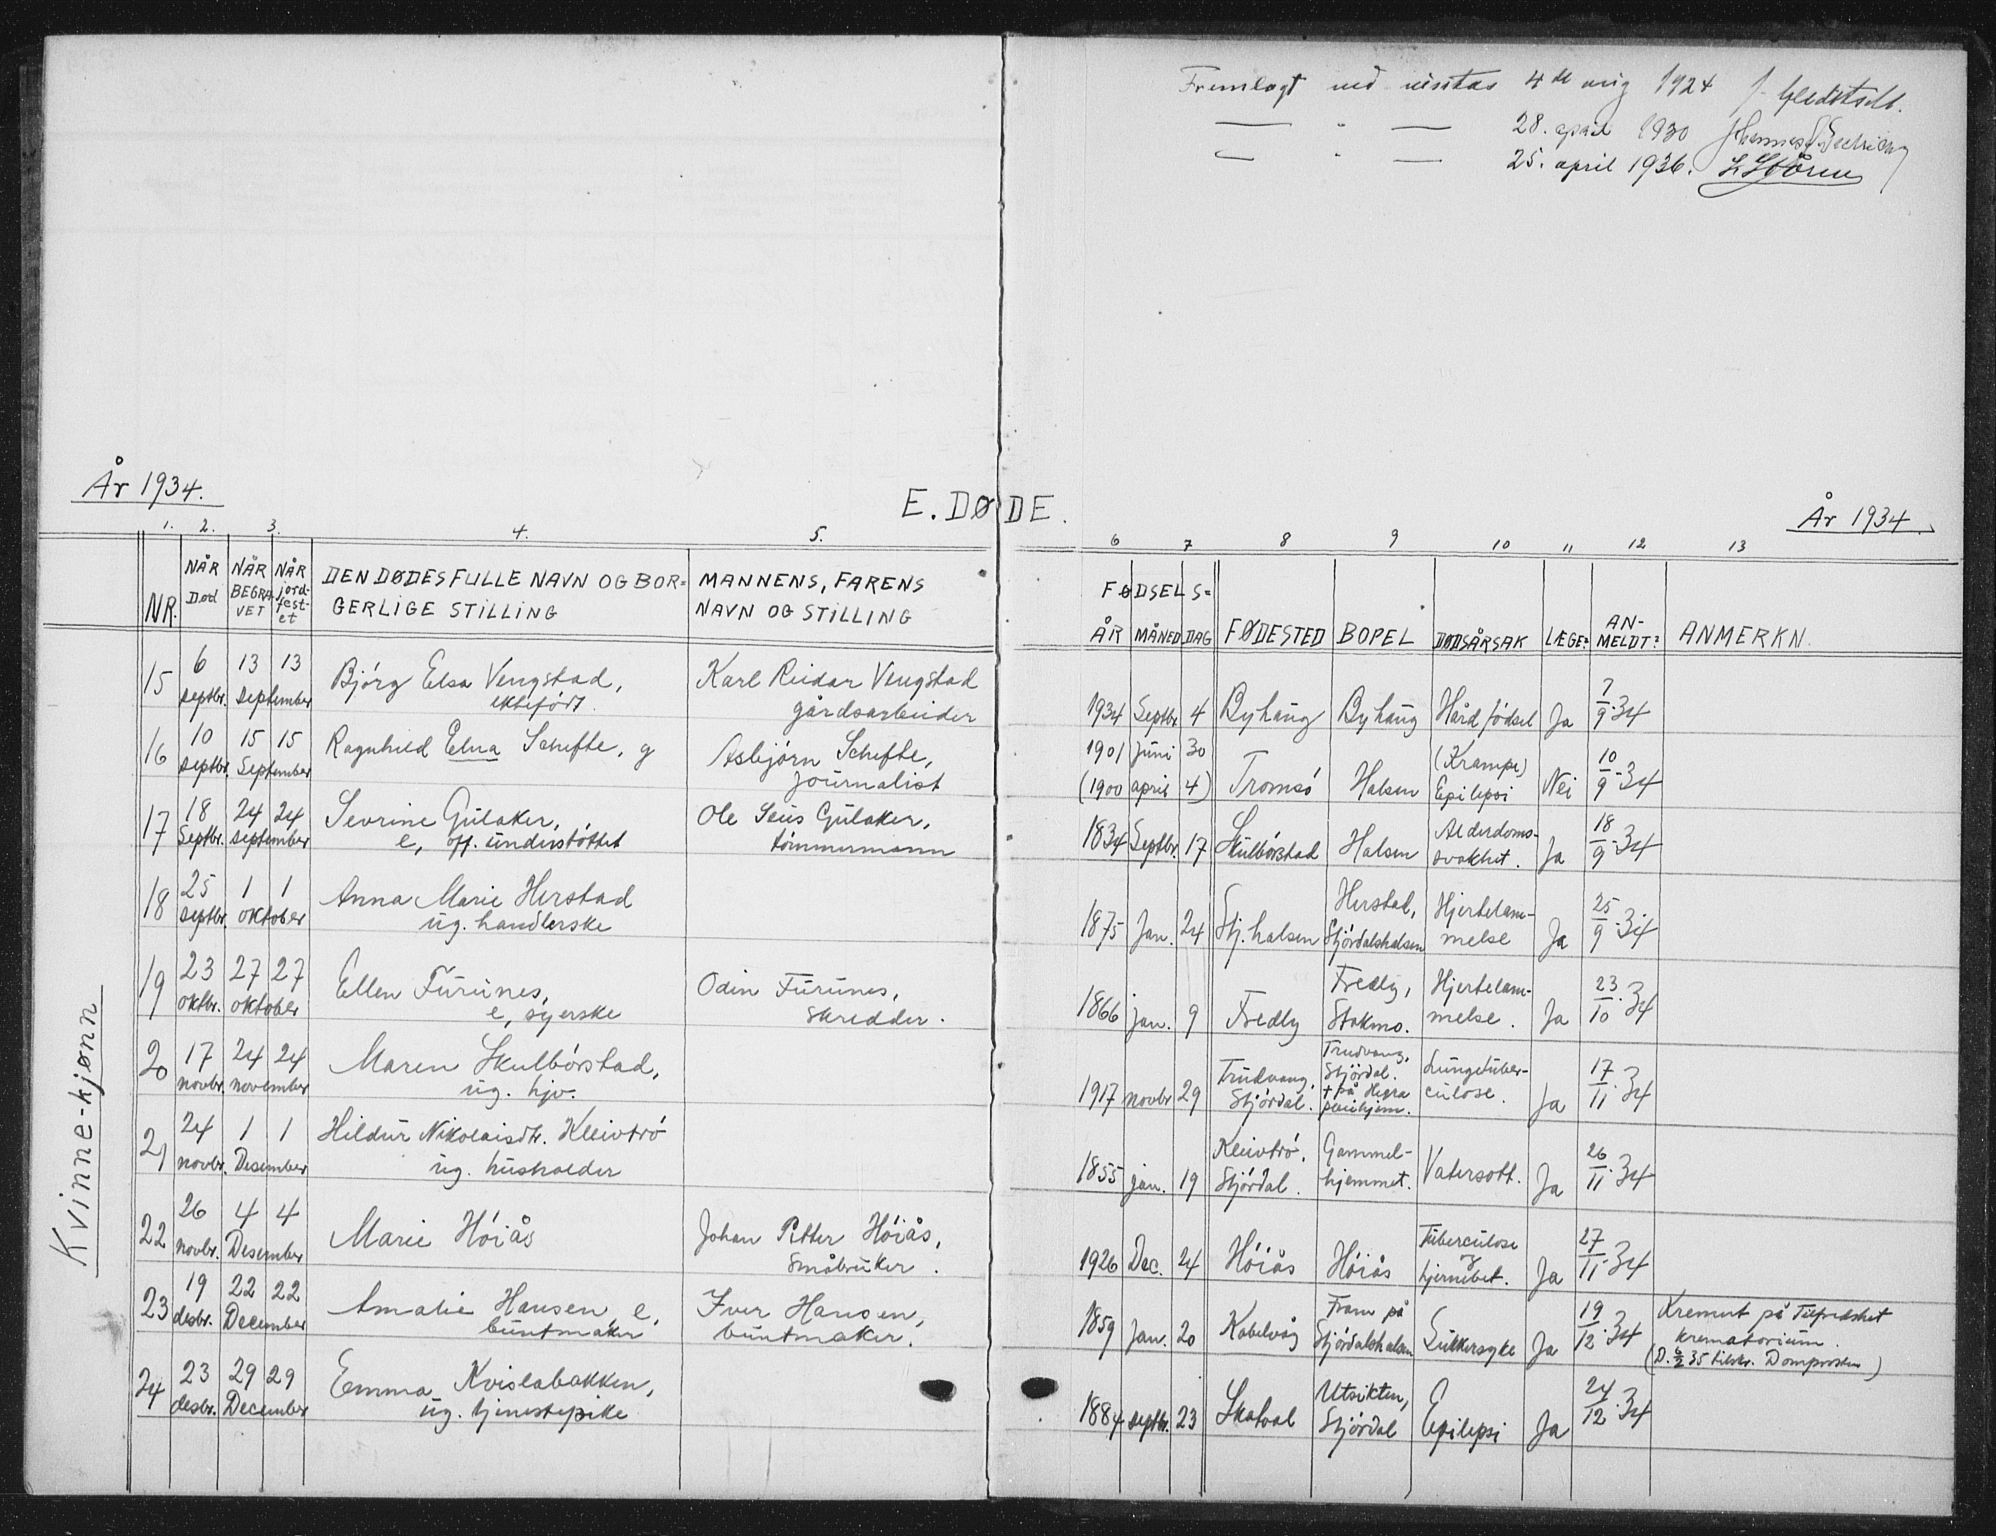 Fremlagt ved visitas 4de aug 1924 J. Gleditsch.
— " — 28. april 1930
— " — 25. april 1936. Støren
År 1934.
E. DØDE.
År 1934.
1. 2. 3. 4. 5. 6 7 8 9 10 11 12 13
NR. NÅR Død NÅR BEGRAVET NÅR jord-fest-et DEN DØDES FULLE NAVN OG BOR=GERLIGE STILLING MANNENS, FARENS NAVN OG STILLING FØDSELS= ÅR MÅNED DAG FØDESTED BOPEL DØDSÅRSAK LÆGE? AN-MELDT? ANMERKN.
Kvinne-kjønn
15 6 septbr. 13 13 september Bjórg Elsa Vengstad, ektefødt. Karl Reidar Vengstad gårdsarbeider 1934 Septbr 4 Byhaug Byhaug Hård fødsel Ja 7/9-34
16 10 septbr. 15 15 September Ragnhild Elna Schefte, g Asbjørn Schefte, journalist 1901 juni 30 (1900 april 4) Tromsö Halsen (Krampe) Epilepsi Nei 10/9-34
17 18 Septbr. 24 24 september Sevrine Gulaker, e, off. understöttet Ole Seus Gulaker, tömmermann 1834 Septbr. 17 Skulbörstad Halsen Alderdoms-svakhet. Ja 18/9-34
18 25 septbr. 1 1 oktober Anna Marie Herstad ug. handlerske 1875 Jan. 24 Stj.halsen Herstad, Stjördalshalsen Hjertelam-melse Ja 25/9-34
19 23 oktbr. 27 27 oktober Ellen Furunes, e, syerske Odin Furunes, Skredder. 1866 jan. 9 Fredly Fredly, Stokmo. Hjertelam-melse. Ja 23/10-34
20 17 novbr. 24 24 november Maren Skulbörstad, ug. hjv. 1917 novbr 29 Trudvang, Stjördal. Trudvang, Stjördal. + på Hegra pleiehjem. Lungetuber-culose. Ja 17/11-34
21 24 novbr. 1 1 Desember Hildur Nikolaisdtr. Kleivtrö ug. husholder 1855 jan. 19 Kleivtrö, Stjördal. Gammel-hjemmet. Vatersott. Ja 26/11-34
22 26 novbr. 4 4 Desember Marie Höiås Johan Petter Höiås, Småbruker. 1926 Dec. 24 Höiås Höiås Tuberculose og hjernebet. Ja 27/11-34
23 19 desbr. 22 22 December Amalie Hansen, e, buntmaker Iver Hansen, buntmaker. 1859 Jan. 20 Kabelvåg Fram på Stjördalshalsen Sukkersyke Ja 19/12-34 Kremert på Tilfredshet krematorium. (D. 6/2 35 tilstr. Domprosten)
24 23 desbr. 29 29 December Emma Kvislabakken, ug. tjenestepike 1884 septbr. 23 Skatval Utsikten, Stjördal Epilepsi Ja 24/12-34